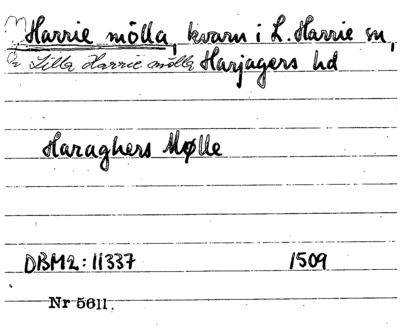 Harrie mölla, kvarn i L. Harrie sn,
Lilla Harrie mölla Harjagers hd
Haraghers Mølle
DBM2: 11337 1509
Nr 5611.